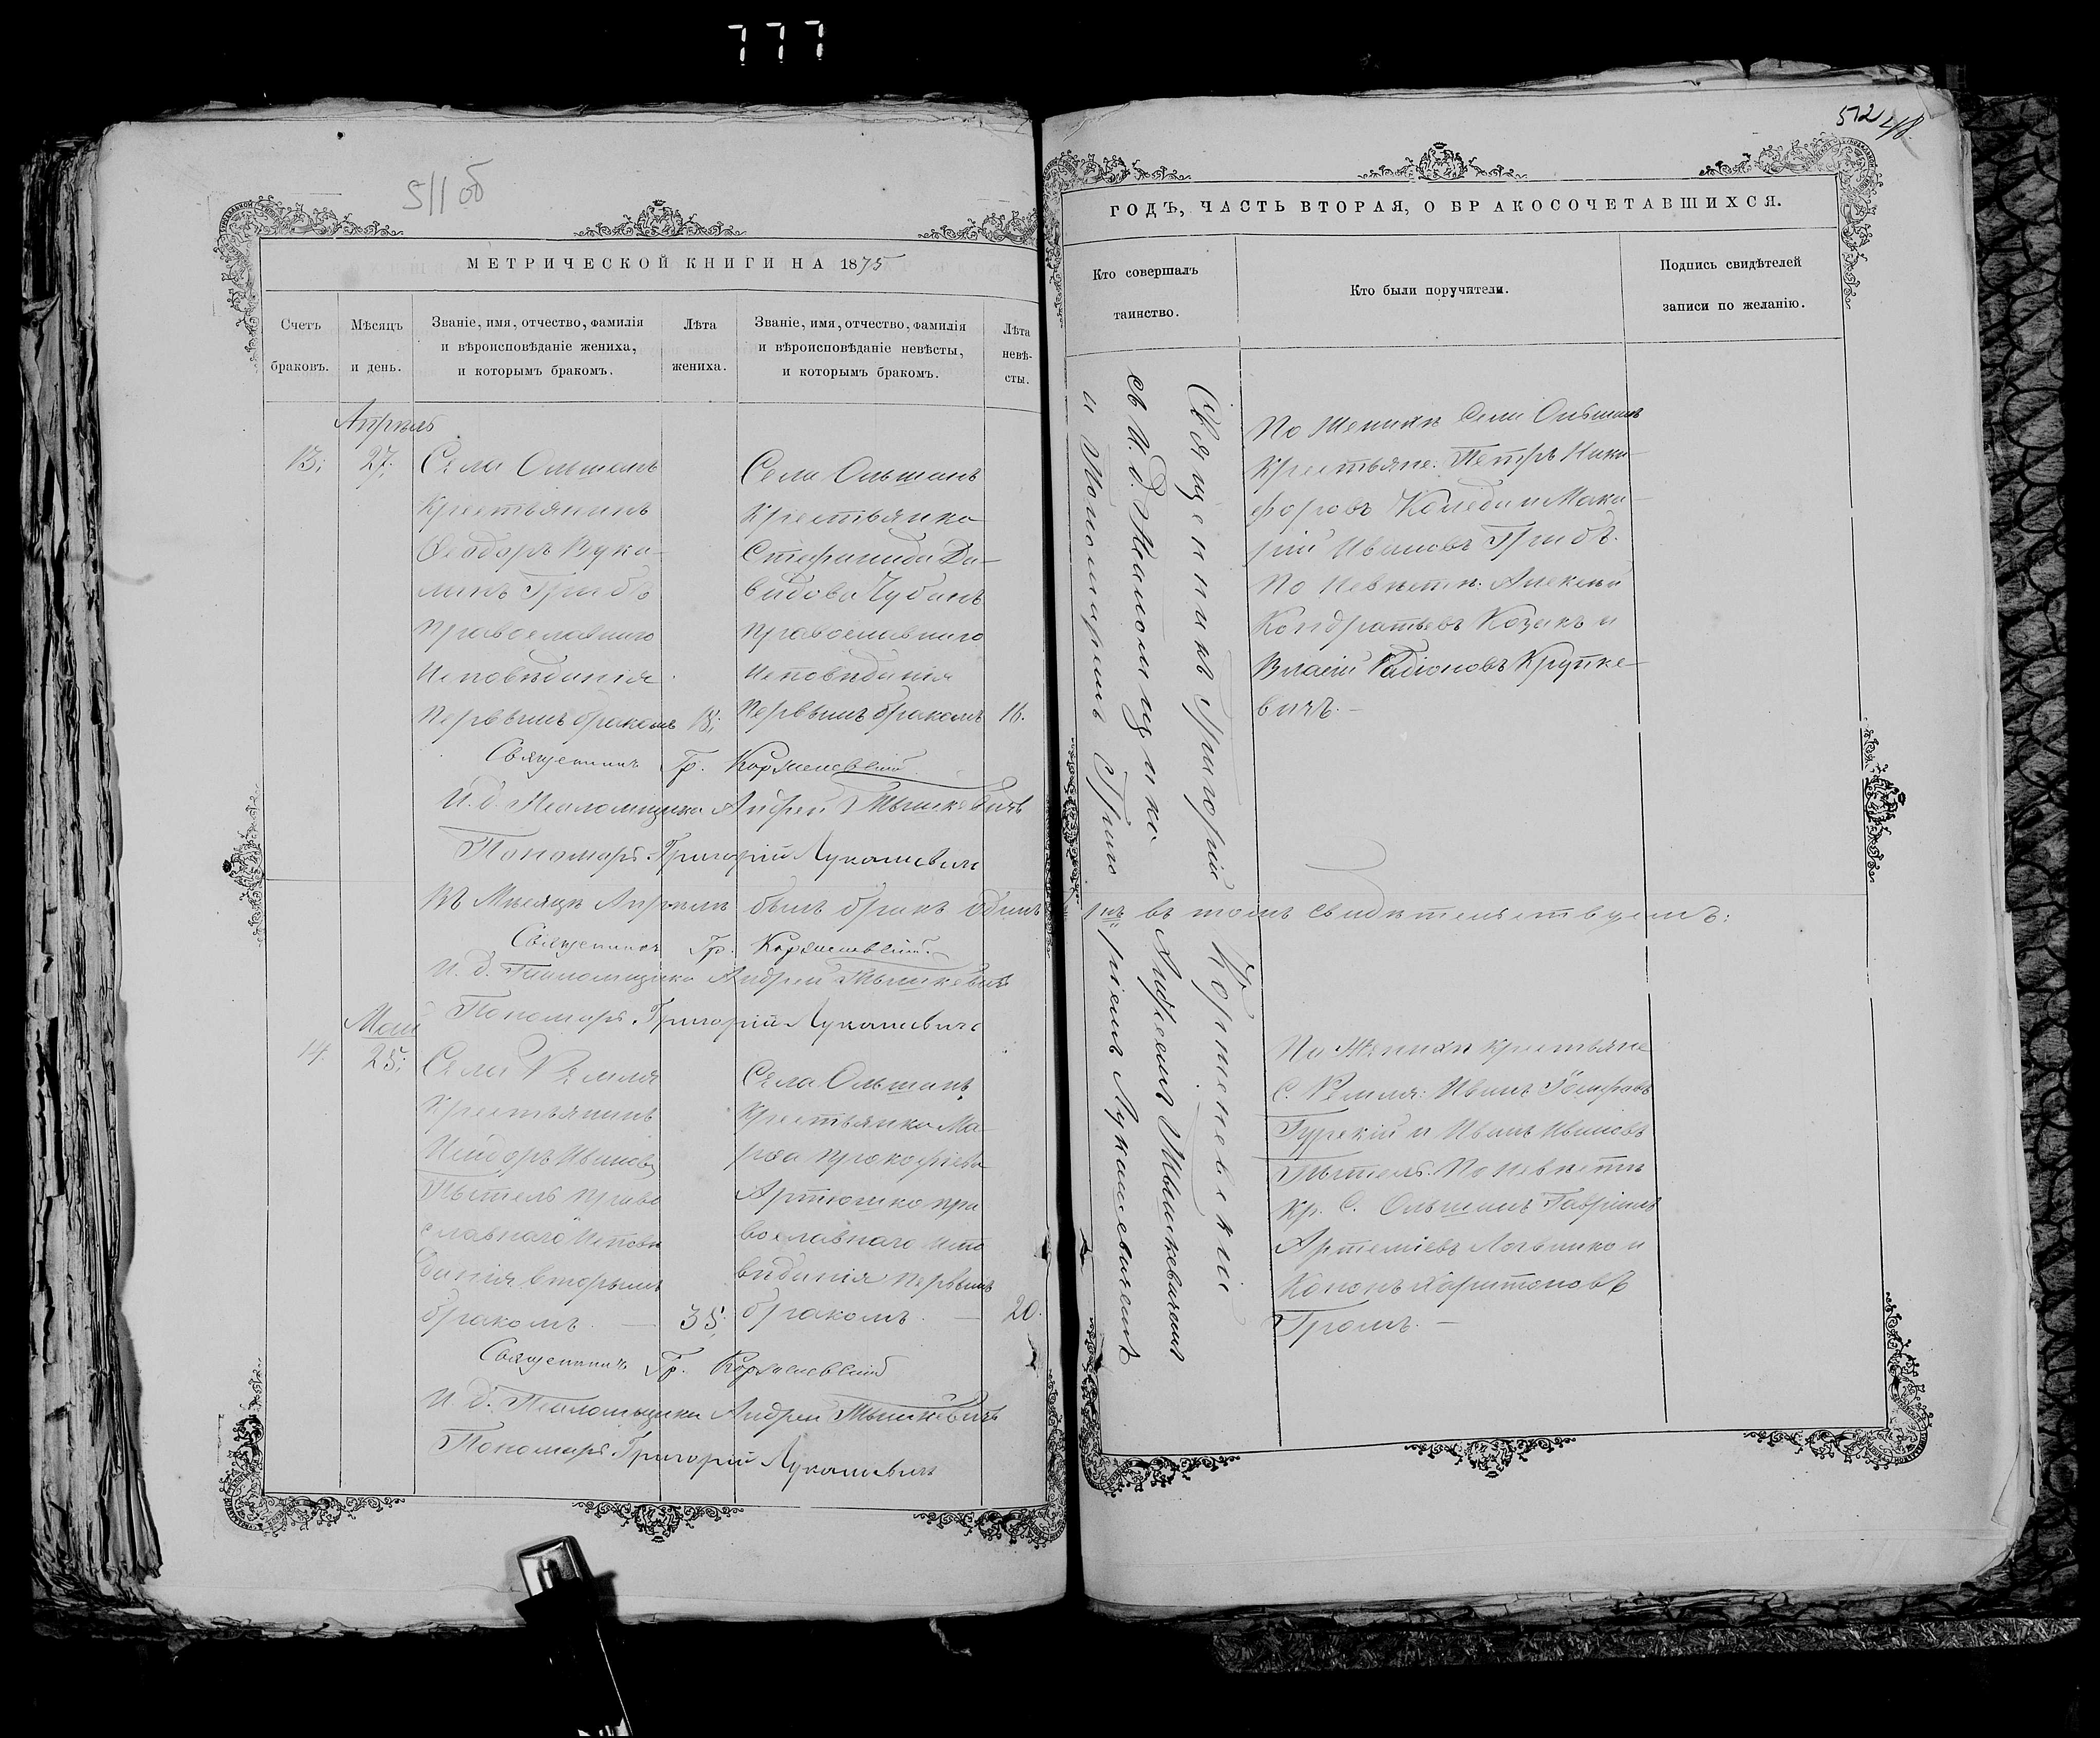 777
511 об
МЕТРИЧЕСКОЙ КНИГИ НА 1875
Счетъ
браковъ.
Мѣсяцъ
и день.
Званіе, имя, отчество, фамилія
и вѣроисповѣданіе жениха,
и которымъ бракомъ.
Лѣта
жениха.
Званіе, имя, отчество, фамилія
и вѣроисповѣданіе невѣсты,
и которымъ бракомъ.
Лѣта
невѣ-
сты.
Апрѣль
13; 27;
Села Ольшанъ
Крестьянинъ
Ѳеодоръ Вука-
Грибъ
Православнаго
Исповѣданія
Первымъ бракомъ
Села Ольшанъ
Крестьянка
Стефанида Да-
видова
Православнаго
Исповѣданія
Первымъ бракомъ 16.
Священникъ Гр. Корженевскій
И. д. Псаломщика Андрей Мышкевичъ
Пономарь Григорій Лукашевичъ
Въ Мѣсяцѣ Апрѣлѣ былъ бракъ одинъ
Священникъ Гр. Корженевскій.
И. д. Псаломщика Андрей Мышкевичъ
Пономарь Григорій Лукашевичъ
Май
14. 25;
Села Ремля
Крестьянинъ
Исидоръ Ивановъ
Пытель право
славнаго Исповѣ
данія вторымъ
бракомъ. — 35;
Села Ольшанъ
Крестьянка Ма-
рѳа Прокофіева
Артюшко пра
вославнаго испо
вѣданія первымъ
бракомъ. — 20.
Священникъ Гр. Корженевскій
И. д. Псаломщика Андрей Мышкевичъ
Пономарь Григорій Лукашевичъ
512 48
ГОДЪ, ЧАСТЬ ВТОРАЯ, О БРАКОСОЧЕТАВШИХСЯ.
Кто совершалъ
таинство.
Кто были поручители.
Подпись свидѣтелей
записи по желанію.
Священникъ Григорій Корженевскій
съ И. д. Псаломщика Андреемъ Мышкевичемъ
и Пономаремъ Григо ріемъ Лукашевичемъ
По Женихѣ Села Ольшанъ
Крестьяне: Петръ Ники-
форовъ Коледа и Мака-
рій Ивановъ Грибъ.
По Невѣстѣ: Алексѣй
Кондратьевъ Козакъ и
Власій Радіоновъ Крупке-
вичъ. —
въ томъ свидѣтельствуемъ:
По Женихѣ крестьяне
С. Ремля: Иванъ
Гурскій и Иванъ Ивановъ
Пытель. По невѣстѣ
Кр. С. Ольшанъ Гавріилъ
Артеміевъ и
Кононъ Харитоновъ
Громъ. —